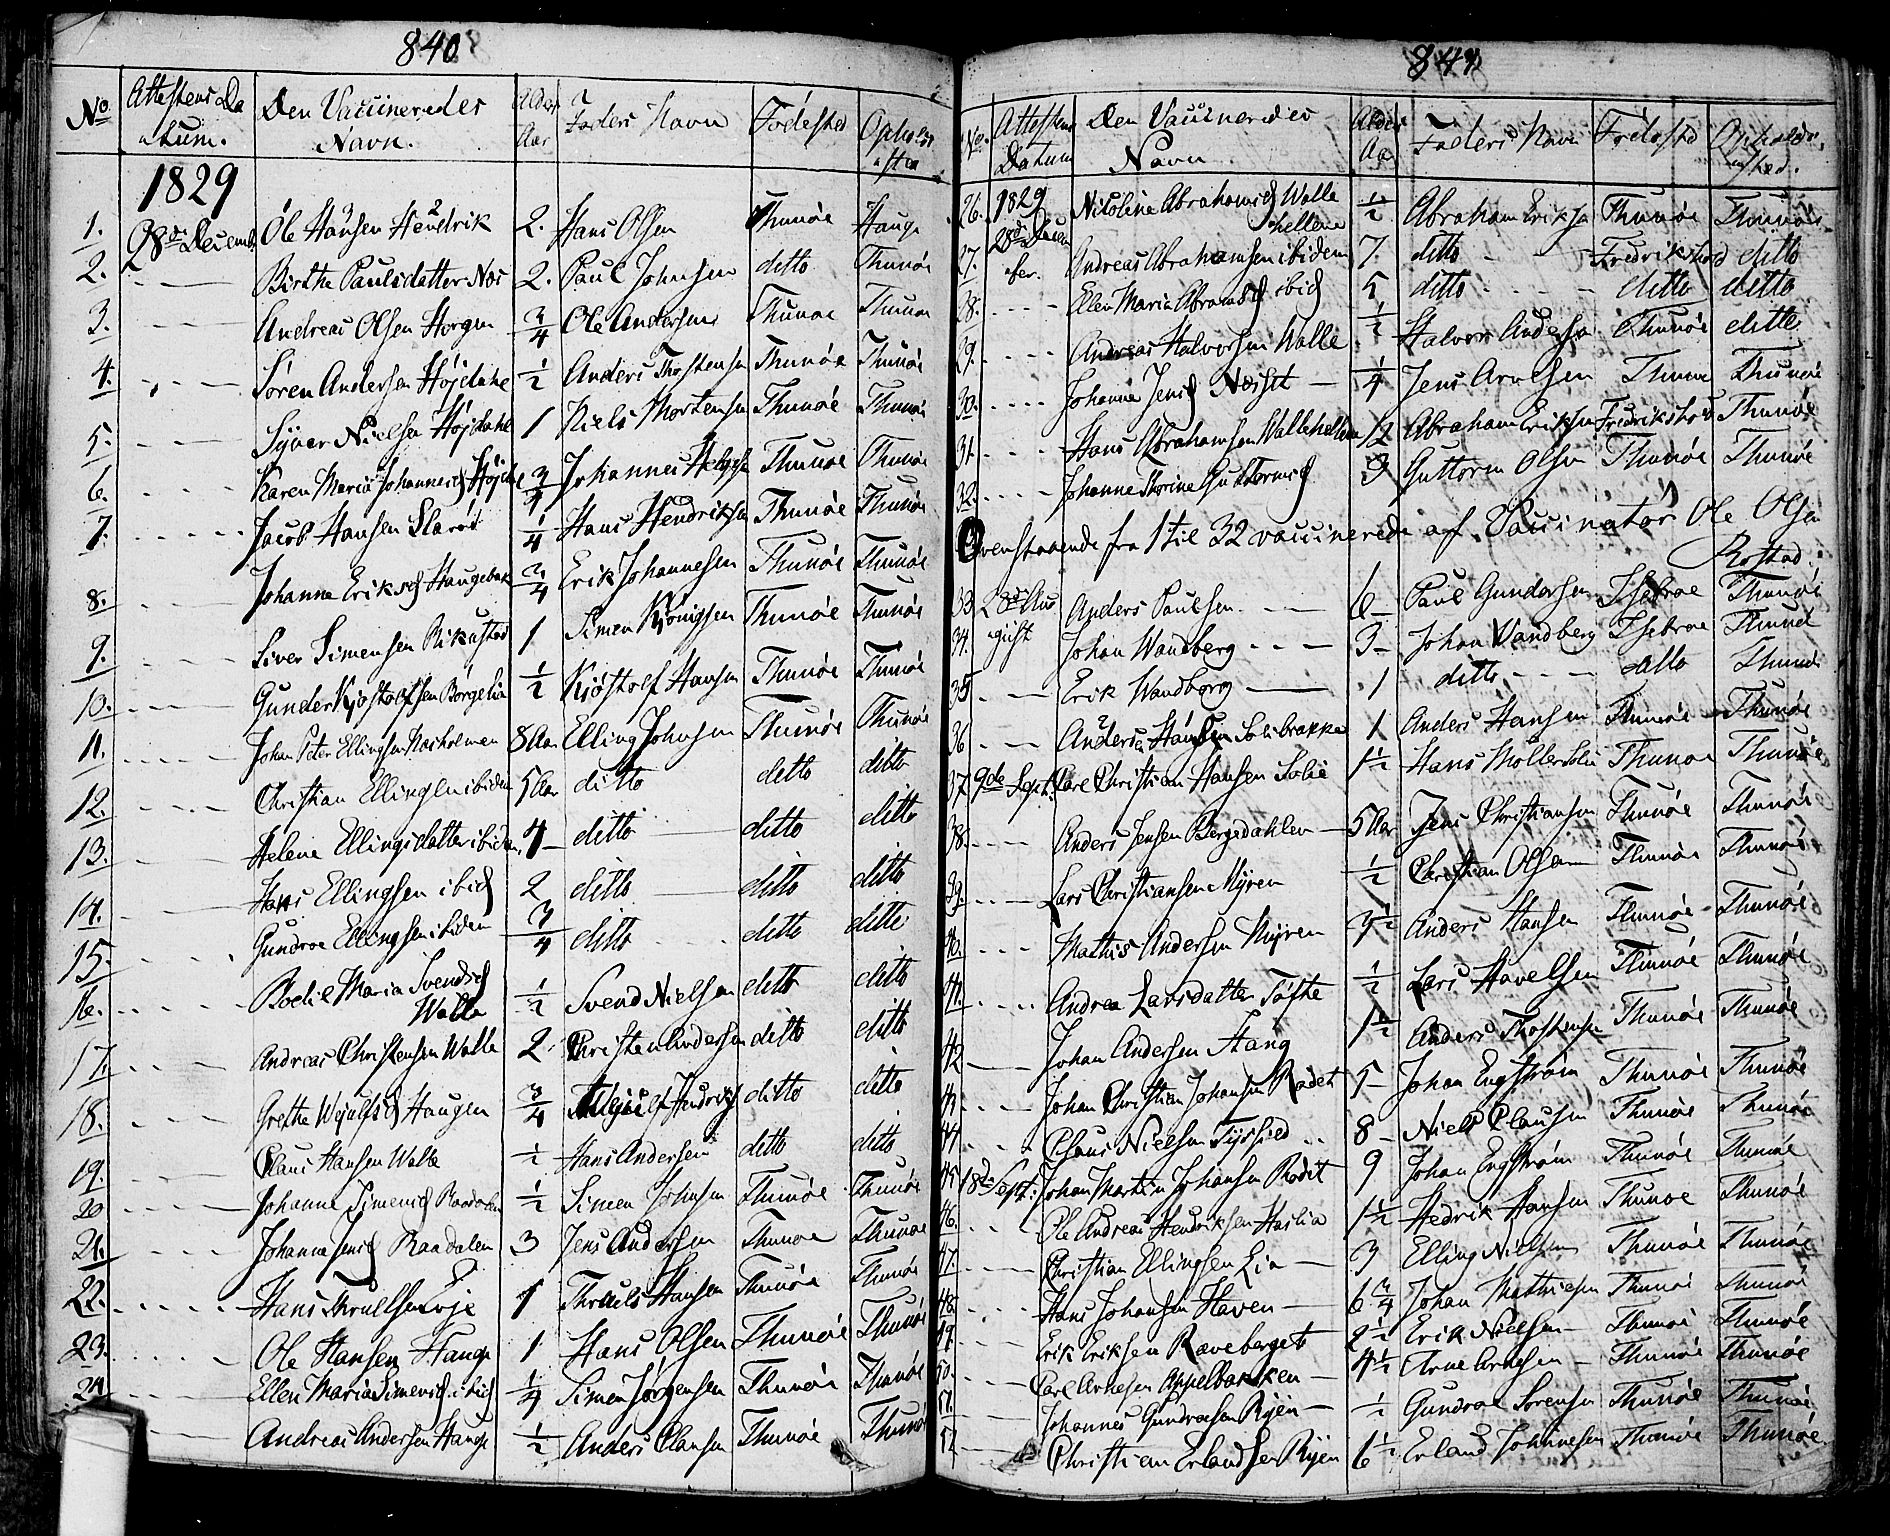 840
No Attestens Da Den Vaccineredes Alder Faders Navn Fødested Opholds
tum. Navn. Aar sted
1829
1. 28de Decemb. Ole Hansen Hendrik 2. Hans Olsen Thunøe Hauge
2. Birthe Paulsdatter Næs 2. Paul Johnsen ditto Thunøe
3. Andreas Olsen Horgen 3/4 Ole Andersen Thunøe Thunøe
4. Søren Andersen Højdahl 1/2 Anders Thostensen Thunøe Thunøe
5. Syver Nielsen Højdahl 1 Niels Mortensen Thunøe Thunøe
6. Karen Maria Johannesd Højdahl 3/4 Johannes Helgesen Thunøe Thunøe
7. Jacob Hansen Slarød 1/4 Hans Hendriksen Thunøe Thunøe
8. Johanne Eriksd Haugebak 3/4 Erik Johannesen Thunøe Thunøe
9. Siver Simensen Rikustad 1 Simen Thunøe Thunøe
10. Gunder Kjøstolfsen Borgelia 1/2 Kjøstolf Hansen Thunøe Thunøe
11. Johan Peter Ellingsen Næsholmen 8 Aar Elling Johnsen Thunøe Thunøe
12. Christian Ellingsen ibidem 5 Aar ditto ditto ditto
13. Helene Ellingsdatter ibidem 4 ditto ditto ditto
14. Hans Ellingsen ibid 2 ditto ditto ditto
15. Gundroe Ellingsen ibidem 3/4 ditto ditto ditto
16. Bodil Maria Svendsd
Walle 1/2 Svend Nielsen ditto ditto
17. Andreas Christensen Walle 2 Christen Andersen ditto ditto
18. Grethe Haugen 3/4 Hendriks ditto ditto
19. Claus Hansen Walle 1/2 Hans Andersen ditto ditto
20 Johanne Simensd Raadalen 1/2 Simen Johnsen Thunøe Thunøe
21. Johanne Jensd Raadalen 3 Jens Andersen Thunøe Thunøe
22. Hans Thruelsen Evje 1 Thruels Hansen Thunøe Thunøe
23. Ole Hansen Hauge 1 Hans Olsen Thunøe Thunøe
24 Ellen Maria Simensd ibid 1/4 Simen Jørgensen Thunøe Thunøe
Andreas Andersen Hauge 1/2 Anders Clausen Thunøe Thunøe
841
No. Attestens Den Vaccineredes Alder Faders Navn Fødested Opholds
Datum Navn Aar sted.
26. 1829 Nicoline Abrahamsd Walle
hellene 1/2 Abraham Eriksen Thunøe Thunøe
27. 28de Decem Andreas Abrahamsen ibidem 7. ditto Fredrikshald ditto
28. ber. Elen Maria Abrahamsd ibid 5 ditto ditto ditto
29. Andreas Halvorsen Walle 1/2 Halvor Andersen Thunøe ditto
30. Johanne Jensd Næsset 1/4 Jens Arvesen Thunøe Thunøe
31. Hans Abrahamsen Wallehellene 12 Abraham Eriksen Fredrikshald Thunøe
32. Johanne Thorine Guttormsd 3 Guttorm Olsen Thunøe Thunøe
Ovenstaaende fra 1 til 32 vaccinerede af Vaccinatør Ole Olsen
Rostad.
33 28de Au Anders Paulsen 6 Paul Gundersen Idebroe Thunøe
34. gust Johan Wandberg 3 Johan Wandberg Idebroe Thunøe
35 Erik Wandborg 1 ditto ditto Thunøe
36 Anders Hansen Solibrække 1 Anders Hansen Thunøe Thunøe
37 9de Sept. Carl Christian Hansen Solie 1 1/2 Hans Møller Solie Thunøe Thunøe
38. Anders Jensen Bergedahlen 5 Aar Jens Christiansen Thunøe Thunøe
39. Lars Christiansen Myren 1/2 Christian Olsen Thunøe Thunøe
40. Mathis Andersen Myren 3 1/2 Anders Hansen Thunøe Thunøe
41. Andrea Larsdatter Tøfte 1/2 Lars Havelsen Thunøe Thunøe
42 Johan Andersen Stang 1 1/2 Anders Thostensen Thunøe Thunøe
43 Johan Christian Johansen Rødet 5 Johan Engstrøm Thunøe Thunøe
44 Claus Nielsen 8 Niels Clausen Thunøe Thunøe
45 18de Sept. Johan Martin Johansen Rødet 9 Johan Engstrøm Thunøe Thunøe
46. Ole Andreas Hendriksen Haslia 1 1/2 Hedrik Hansen Thunøe Thunøe
47. Christian Ellingsen Lia 3 Elling Nielsen Thunøe Thunøe
48. Hans Johansen Haven 6 3/4 Johan Mathiesen Thunøe Thunøe
49. Erik Eriksen Ræveberget 2 1/2 Erik Nielsen Thunøe Thunøe
50. Carl Arnesen Appelbækken 4 1/2 Arne Arnesen Thunøe Thunøe
51. Johannes Gundroesen Ryen 1/2 Gundroe Sørensen Thunøe Thunøe
52 Christian Erlandsen Ryen 6 1/2 Erland Johnnesen Thunøe Thunøe